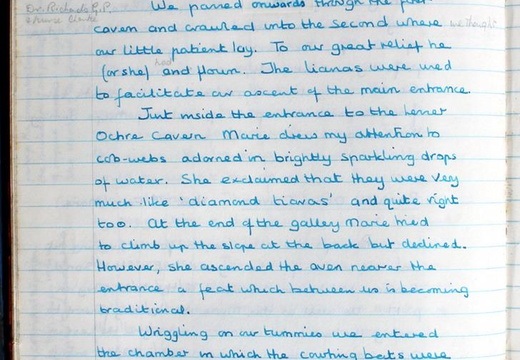 Dr. Richards G.P.
We passed onwards through the first
cavern and crawled into the second where we thought
our little patient lay. To our great relief he
(or she) had flown. The lianas were used
to facilitate our ascent of the main entrance.
Just inside the entrance to the
Ochre Cavern Marie drew my attention to
cob-webs adorned in brightly sparkling drops
of water. She exclaimed that they were very
much like 'diamond tiaras' and quite right
too. At the end of the galley Marie tried
to climb up the slope at the back but declined.
However, she ascended the aven nearer the
entrance a feat which between us is becoming
traditional.
Wriggling on our tummies we entered
the chamber in which the courting bats were